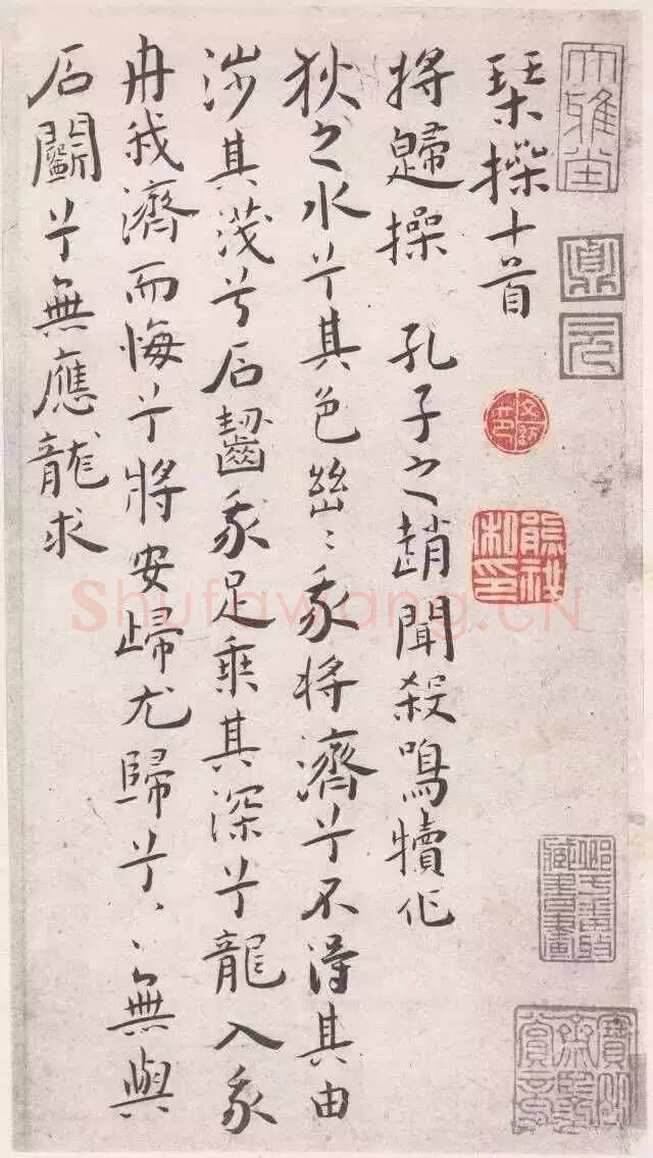 大雅堂
琹操十首
将歸操 孔子之趙聞殺鳴犢作
狄之水兮其色幽〻我将濟兮不得其由
涉其浅兮石齧我足乗其深兮龍入我
舟我濟而悔兮將安歸尤歸兮〻〻無與
石鬬兮無應龍求
Shufawang.CN